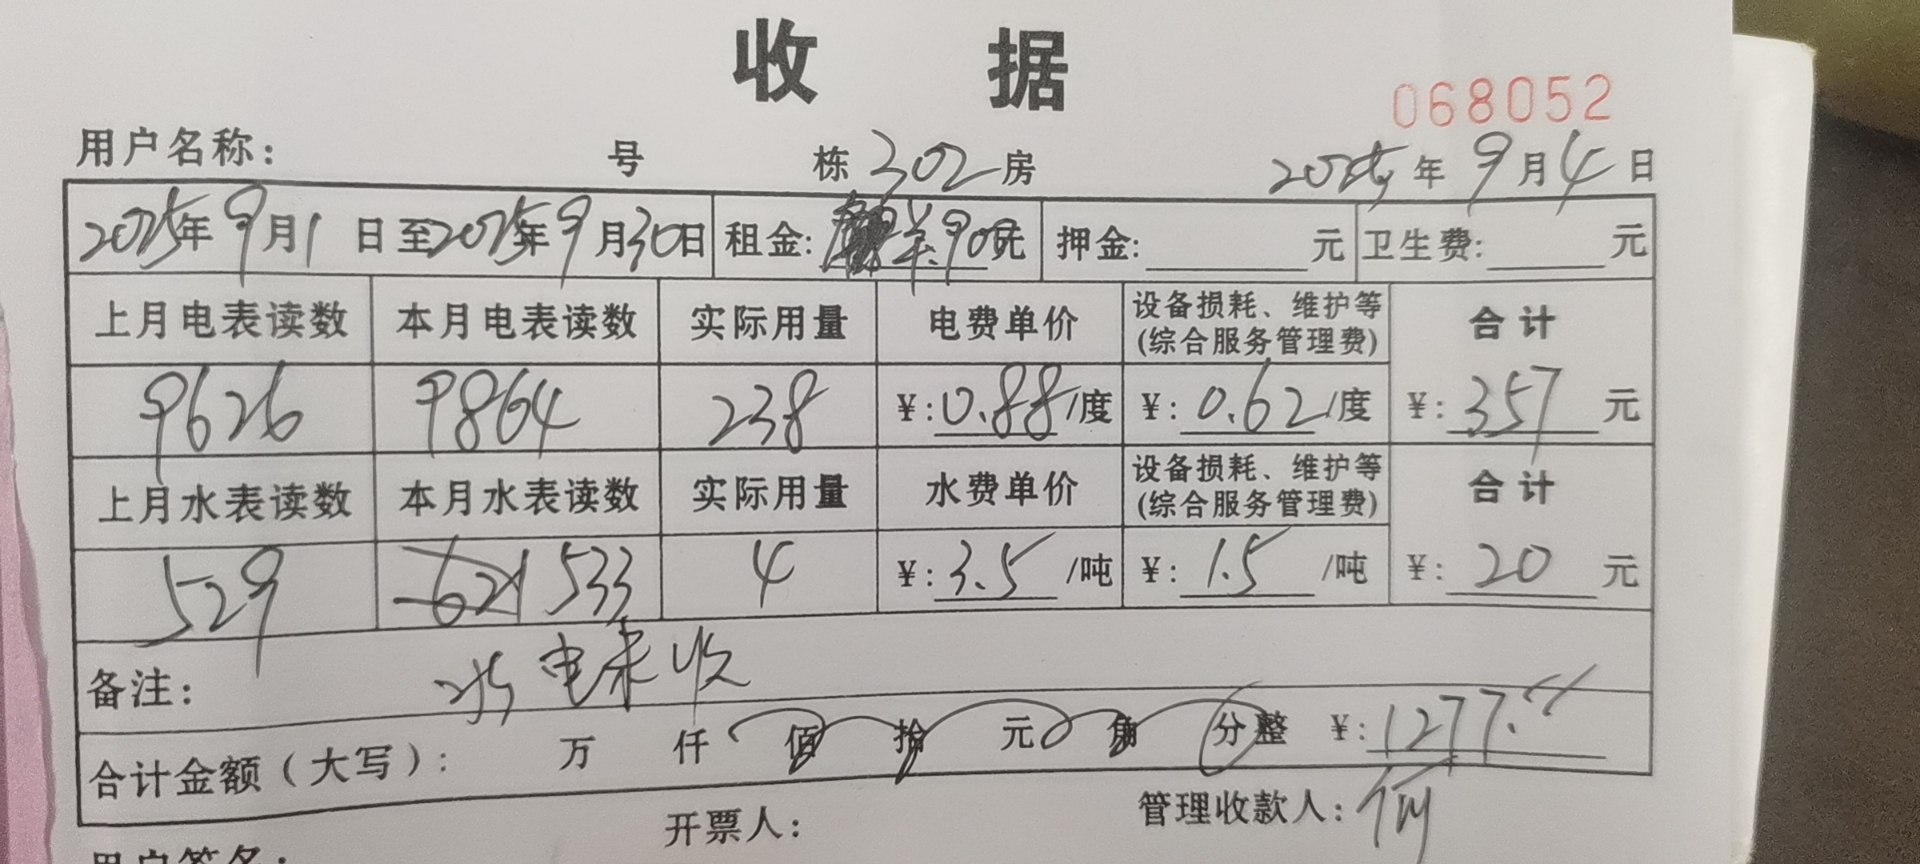 收 据
068052
用户名称: 号 栋 302 房 2025 年 9 月 4 日
2025年 9月 1 日至 2025年 9月 30日 租金: 900元 押金: 元 卫生费: 元
上月电表读数 本月电表读数 实际用量 电费单价 设备损耗、维护等 (综合服务管理费) 合计
9626 9864 238 ¥: 0.88 /度 ¥: 0.62 /度 ¥: 357 元
上月水表读数 本月水表读数 实际用量 水费单价 设备损耗、维护等 (综合服务管理费) 合计
529 621 533 4 ¥: 3.5 /吨 ¥: 1.5 /吨 ¥: 20 元
备注: 水电未收
合计金额(大写): 万 仟 佰 拾 元 角 分整 ¥: 1277.
开票人: 管理收款人: 何
用户签名: